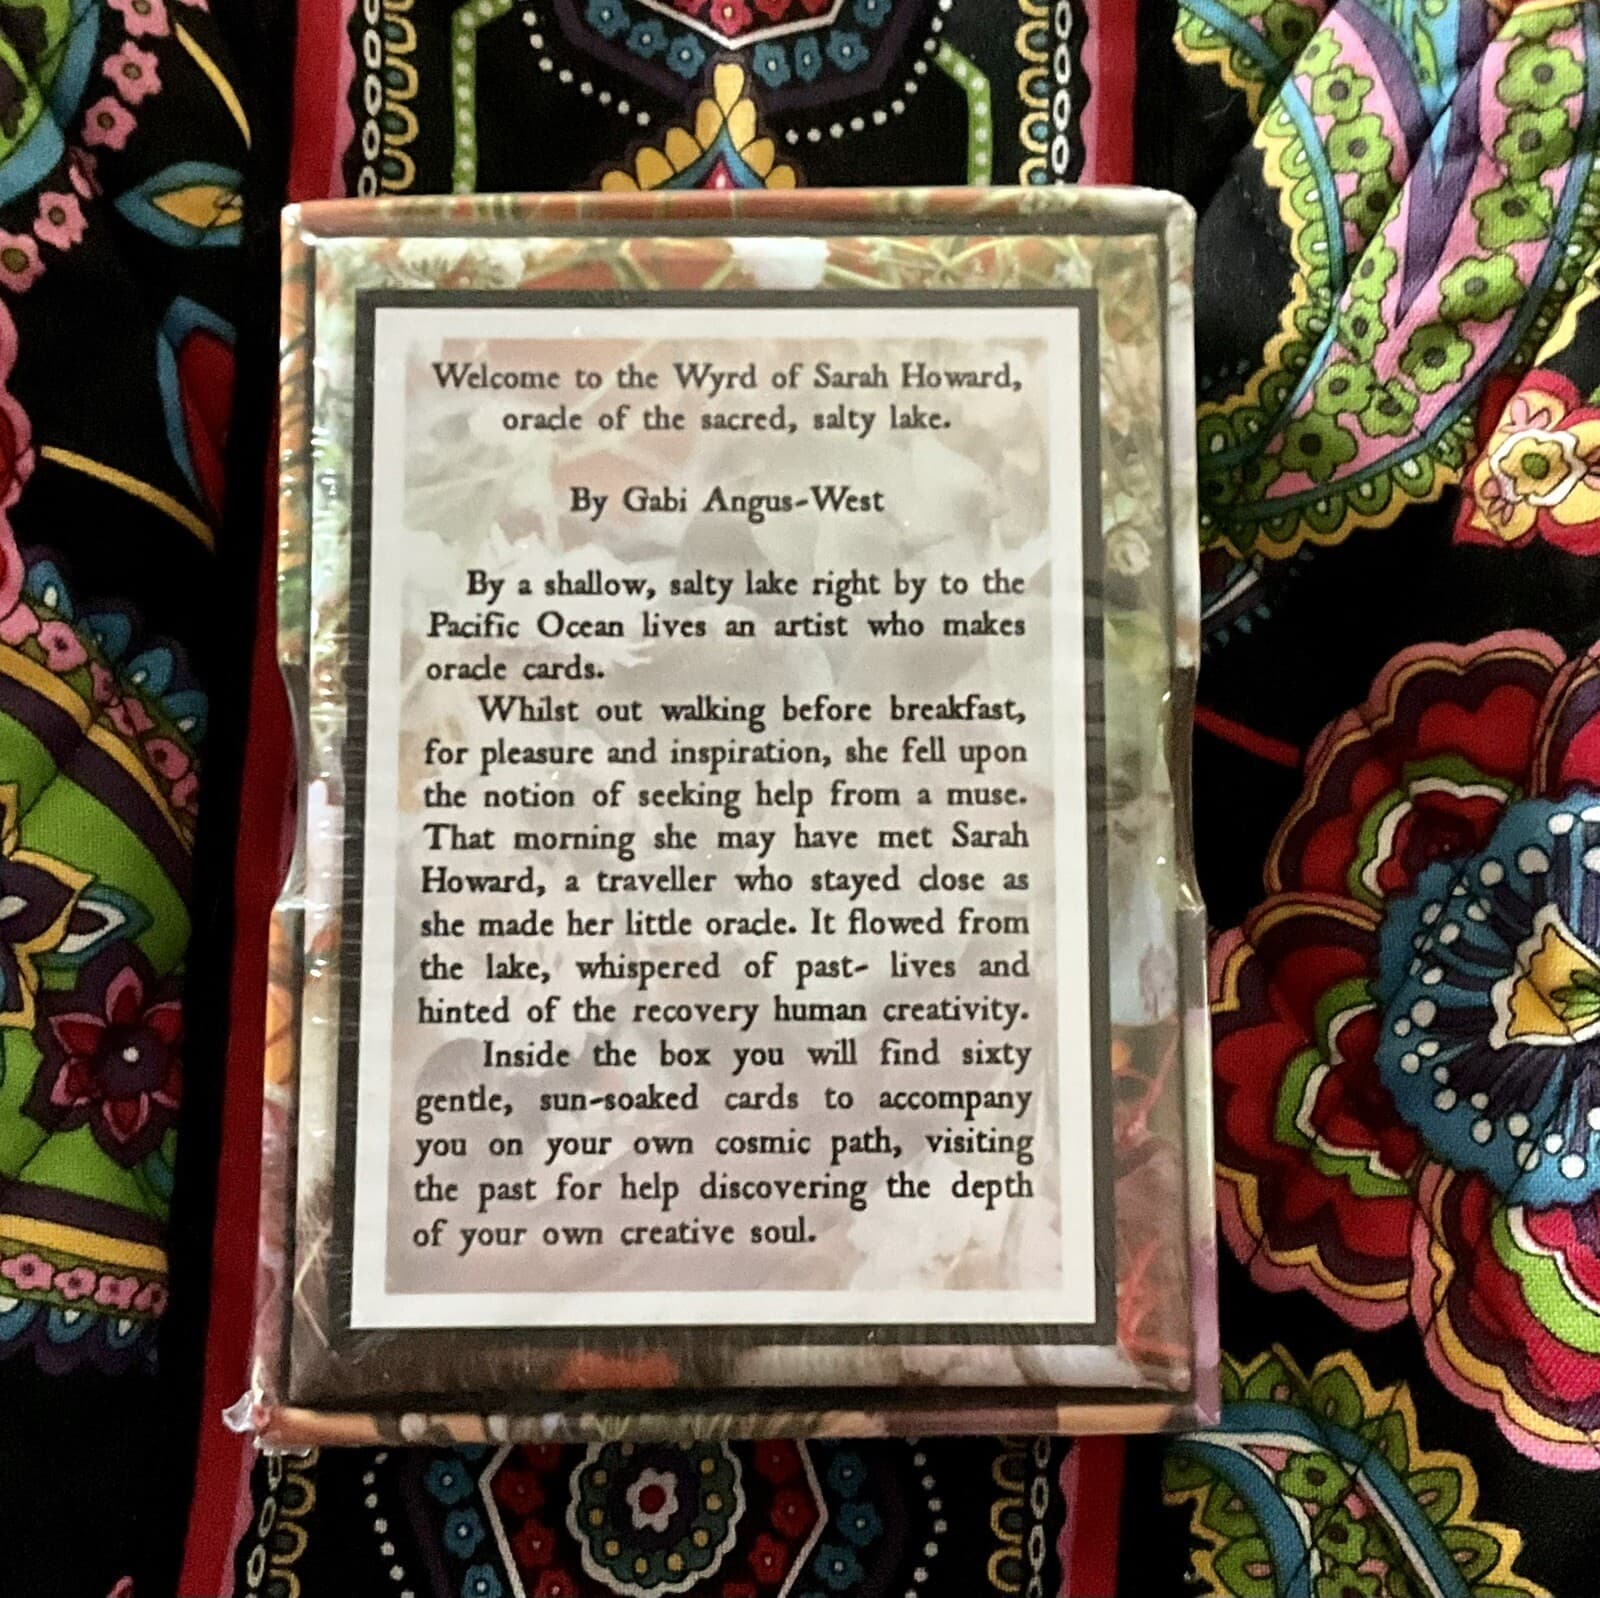 Welcome to the Wyrd of Sarah Howard,
oracle of the sacred, salty lake.
By Gabi Angus-West
By a shallow, salty lake right by to the
Pacific Ocean lives an artist who makes
oracle cards.
Whilst out walking before breakfast,
for pleasure and inspiration, she fell upon
the notion of seeking help from a muse.
That morning she may have met Sarah
Howard, a traveller who stayed close as
she made her little oracle. It flowed from
the lake, whispered of past- lives and
hinted of the recovery human creativity.
Inside the box you will find sixty
gentle, sun-soaked cards to accompany
you on your own cosmic path, visiting
the past for help discovering the depth
of your own creative soul.